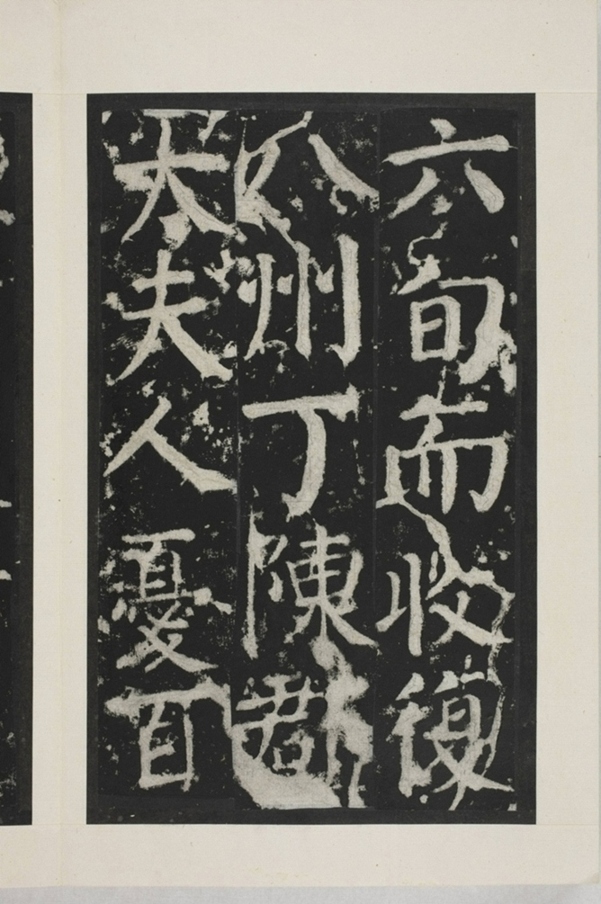 六旬而收復
八州丁陳郡
太夫人憂百